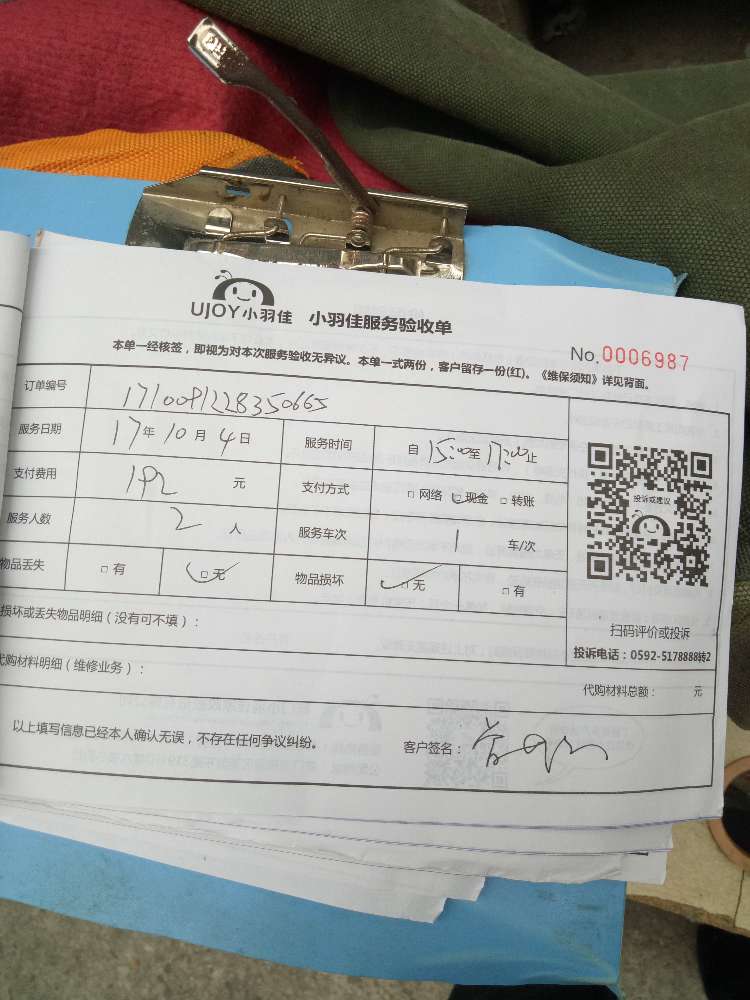 UJOY小羽佳 小羽佳服务验收单
No.0006987
本单一经核签，即视为对本次服务验收无异议。本单一式两份，客户留存一份(红)。《维保须知》详见背面。
订单编号 171009122835066S
服务日期 17年10月4日 服务时间 自15:00至17:00止
支付费用 192元 支付方式 □网络 □现金 □转账
服务人数 2人 服务车次 1 车/次
物品丢失 □有 □无 物品损坏 □无 □有
投诉或建议
扫码评价或投诉
投诉电话：0592-5178888转2
损坏或丢失物品明细（没有可不填）：
代购材料明细（维修业务）：
代购材料总额： 元
以上填写信息已经本人确认无误，不存在任何争议纠纷。 客户签名：